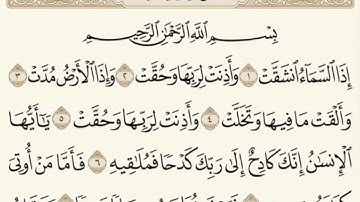 بِسْمِ اللَّهِ الرَّحْمَٰنِ الرَّحِيمِ
إِذَا السَّمَاءُ انشَقَّتْ ١ وَأَذِنَتْ لِرَبِّهَا وَحُقَّتْ ٢ وَإِذَا الْأَرْضُ مُدَّتْ ٣
وَأَلْقَتْ مَا فِيهَا وَتَخَلَّتْ ٤ وَأَذِنَتْ لِرَبِّهَا وَحُقَّتْ ٥ يَا أَيُّهَا
الْإِنسَانُ إِنَّكَ كَادِحٌ إِلَىٰ رَبِّكَ كَدْحًا فَمُلَاقِيهِ ٦ فَأَمَّا مَنْ أُوتِيَ